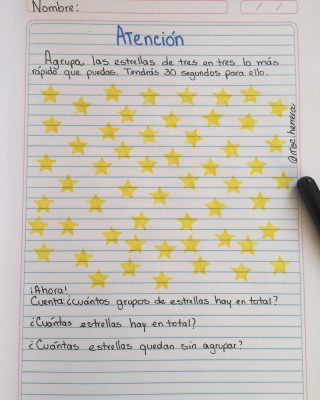 Nombre:
Atención
Agrupa las estrellas de tres en tres lo más
rápido que puedas. Tendrás 30 segundos para ello.
¡Ahora!
Cuenta: ¿cuántos grupos de estrellas hay en total?
¿Cuántas estrellas hay en total?
¿Cuántas estrellas quedan sin agrupar?